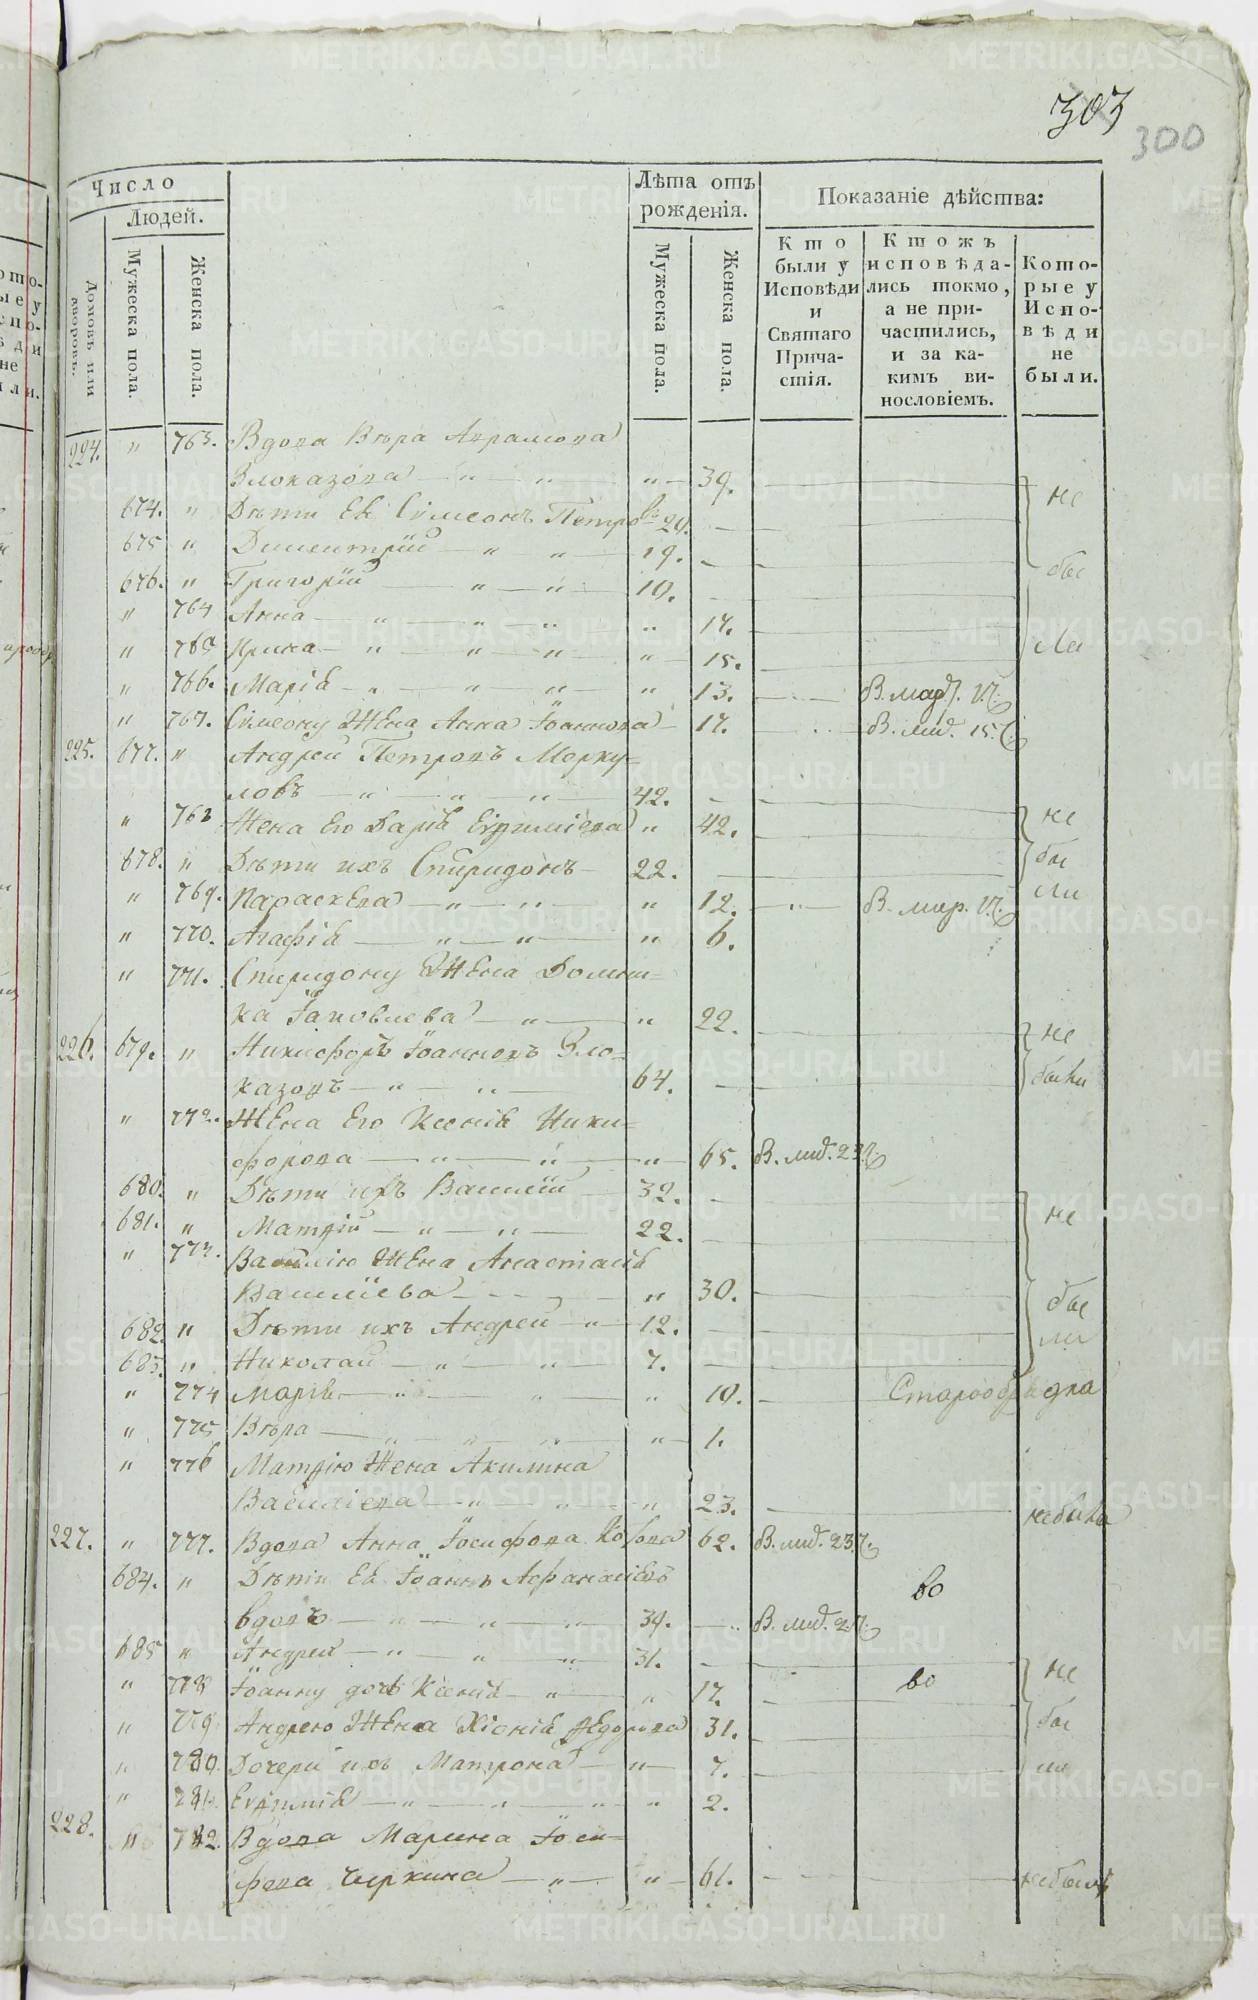 303
300
Число
Людей.
Домовъ или дворовъ.
Мужеска пола.
Женска пола.
Лѣта отъ рожденія.
Мужеска пола.
Женска пола.
Показаніе дѣйства:
Кто были у Исповѣди и Святаго Причастія.
Ктожъ исповѣдались токмо, а не причастились, и за какимъ винословіемъ.
Которые у Исповѣди не были.
224. " 763. Вдова Вѣра Аврамова
Злоказова — " — " " — 39. не
674. " Дѣти Ея Сѵмеонъ Петро въ 20.
675 " Димитрій — " " 19. бы
676. " Григорій " — " 10.
" 764 Анна — " — " — " " 17.
" 765 Ирина — " — " — " " — 15. ли
" 766. Марія — " — " " — " 13.
" 767. Сѵмеону Жена Анна Іоаннова 17. В. мид. 15 г.
225. 677. " Андрей Петровъ Мерку=
ловъ — " — " — " 42.
" 768 Жена Его Дарія Евѳиміева " 42. не
678. " Дѣти ихъ Спиридонъ — 22. бы
" 769. Параскева — " — " " 12. — " — ли
" 770. Агафія — " — " " 6.
" 771. Спиридону Жена Домни=
ка Іаковлева — " " 22.
226. 679. " Никифоръ Іоанновъ Зло= не
казовъ — " — " 64. были
" 772. Жена Его Ксенія Ники=
форова — " — " — " 65. В. мид. 23 г.
680. " Дѣти ихъ Василій 32.
681. " Матѳій — " — " 22. не
" 773. Василію Жена Анастасія
Василіева " 30. бы
682. " Дѣти ихъ Андрей — " 12. ли
683. " Николай — " — " 7.
" 774 Марія — " " " 10. Старообрядка
" 775 Вѣра — " " " " — 1.
" 776 Матѳію Жена Акилина
Василіева — " — " — " 23. небыла
227. " 777. Вдова Анна Іосифова 62. В. мид. 23 г.
684. " Дѣти Ея Іоаннъ Аѳанасіевъ во
вдовъ — " " " 39. В. мид.
685 " Андрей — " " " 31. не
" 778 Іоанну дочь Ксенія — " " 17. во
" 779 Андрею Жена Хіонія Ѳедорова 31. бы
" 780. Дочери ихъ Матрона — " 7. ли
" 781. Евѳимія — " " " " 2.
228. " 782. Вдова Марина Іоси=
фова Чиркина — " — " — 61. небыла
METRIKI.GASO-URAL.RU